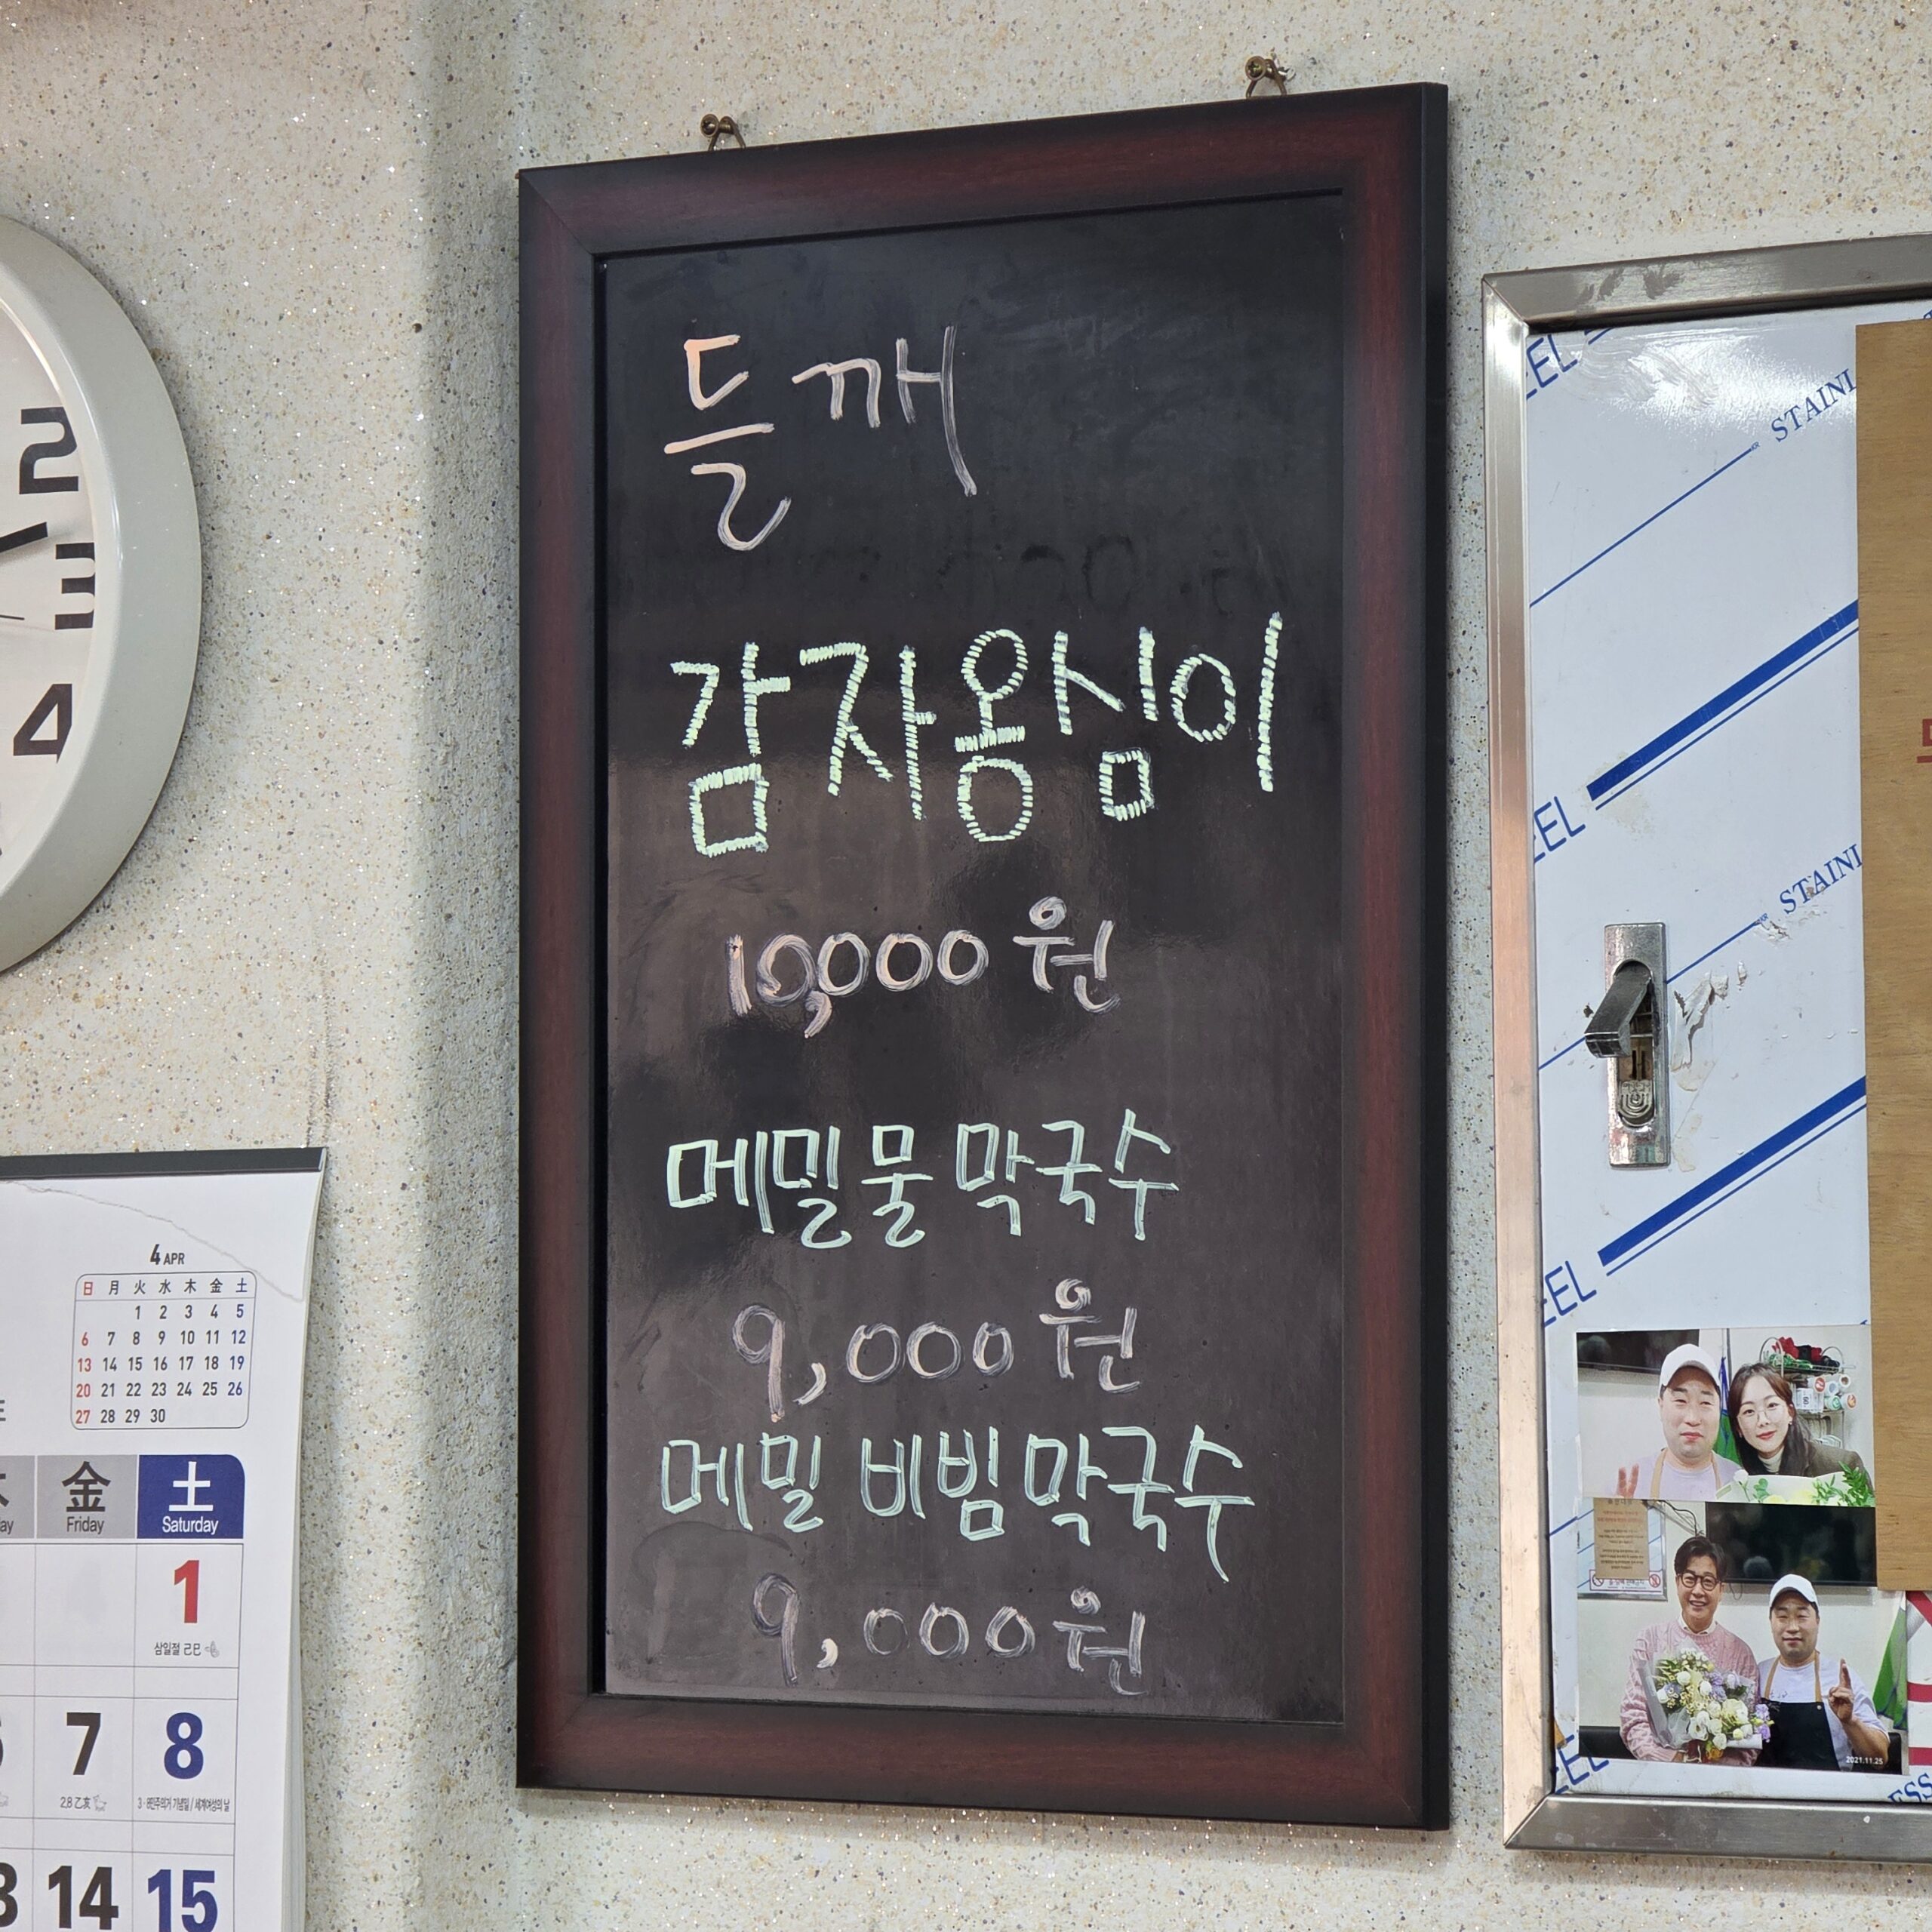 들깨
감자옹심이
10,000원
메밀물막국수
9,000원
메밀 비빔막국수
9,000원
2
3
4
4 APR
日 月 火 水 木 金 土
1 2 3 4 5
6 7 8 9 10 11 12
13 14 15 16 17 18 19
20 21 22 23 24 25 26
27 28 29 30
金 土
Friday Saturday
1
삼일절 己巳
7 8
2.8 乙亥 3·8민주의거 기념일 / 세계여성의 날
14 15
EEL
STAINL
EEL
STAINL
EEL
EEL
ESS
2021.11.25